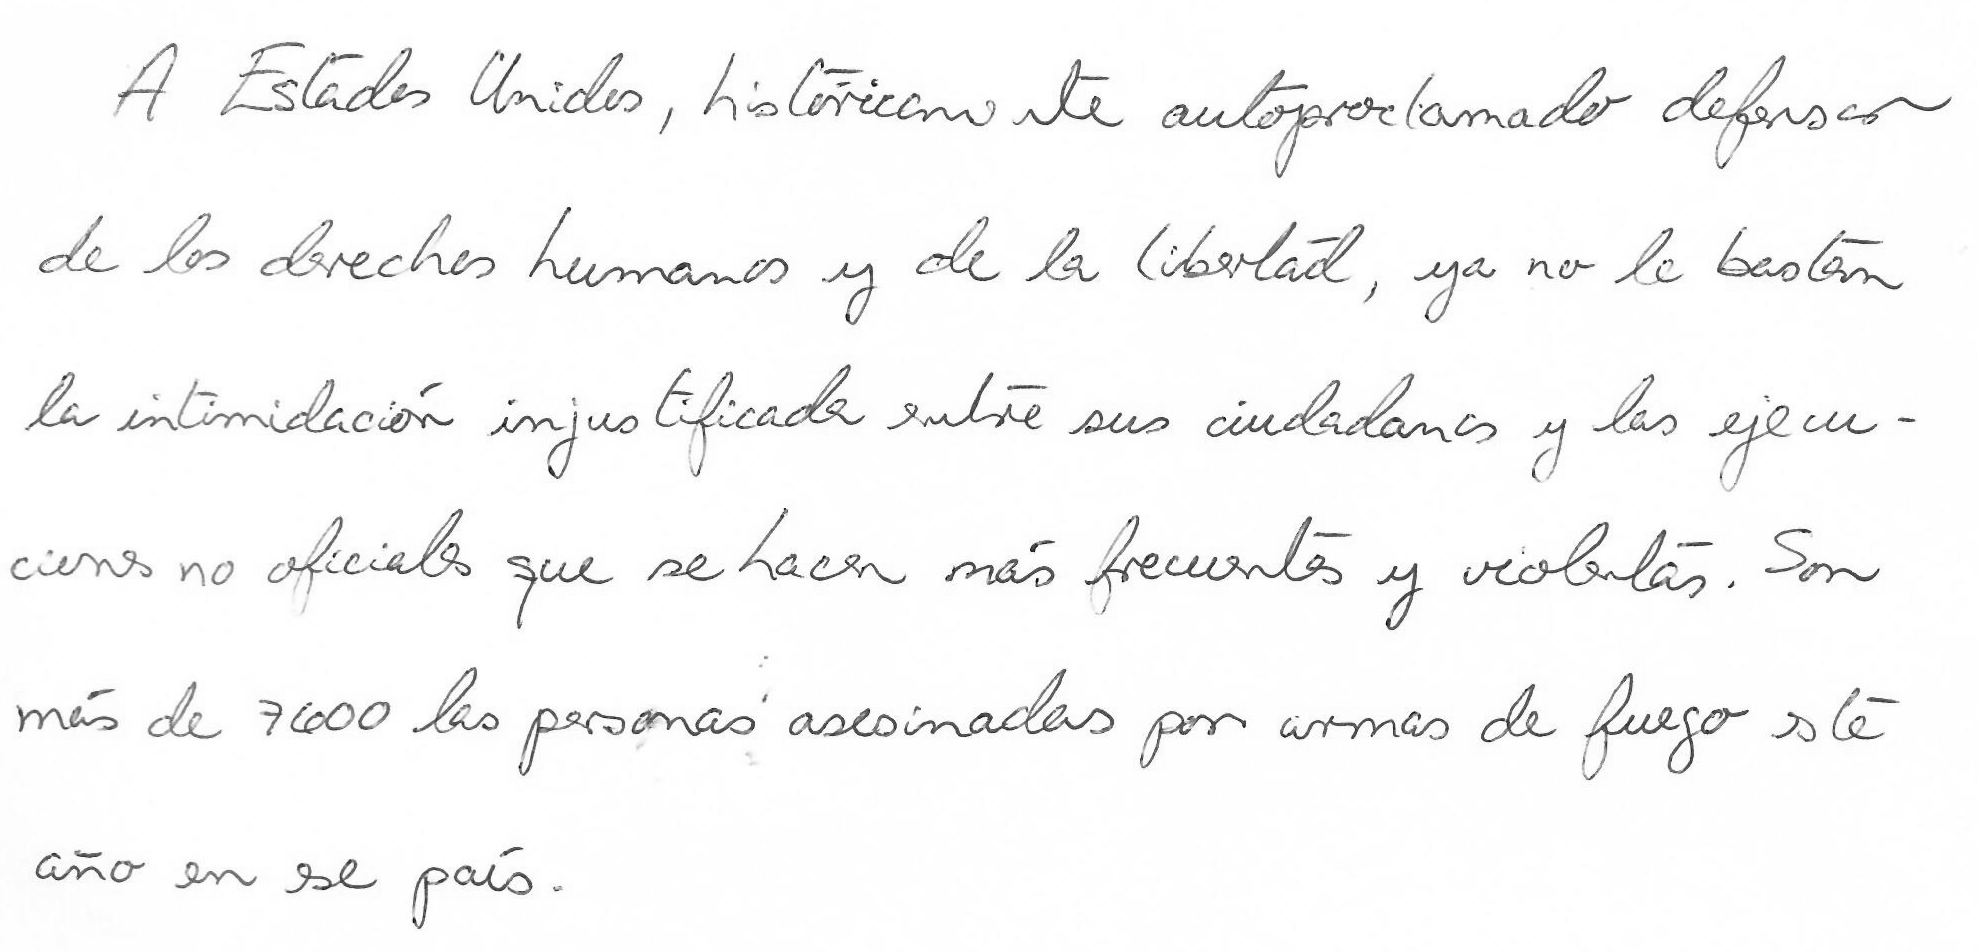 A Estados Unidos, históricamente autoproclamado defensor
de los derechos humanos y de la libertad, ya no le bastan
la intimidación injustificada entre sus ciudadanos y las ejecu-
ciones no oficiales que se hacen más frecuentes y violentas. Son
más de 7600 las personas asesinadas por armas de fuego este
año en ese país.